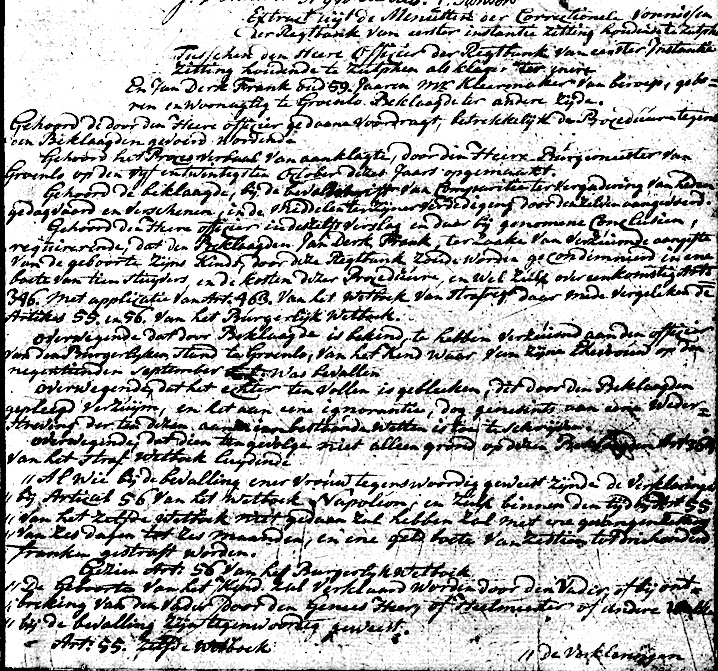 Extract uijt de Menuten der Correctionele Vonnissen
der Regtbank van eerster instantie zitting houdende te Zutphen
Tusschen den Heere Officier der Regtbank van eerster Instantie
Zitting houdende te Zutphen als klager ter eenre
En Jan Derk Frank oud 59 Jaaren Kleermaker van beroep, gebo-
ren en woonagtig te Groenlo. Beklaagde ter andere Zijde.
Gehoord de door den Heere officier gedaane voordragt, betrekkelijk de Procedure tegen
den Beklaagden gevoerd wordende
Gehoord het Proces verbaal van aanklagte, door den Heere Burgemeester van
Groenlo op den vijf en twentigsten October dezes Jaars opgemaakt.
Gehoord de beklaagde, bij de van Comparitie ter vergadering van heden
gedagvaard en verschenen, in de Middelen ter zijner verdediging door denzelven aangevoerd.
Gehoord den Heere officier in deszelfs verslag en daar bij genomene Conclusien,
requirerende, dat den Beklaagden Jan Derk Frank, ter zaake van verzuimde aangifte
van de geboorte zijns Kinds, door deze Regtbank zoude worden gecondemneerd in eene
boete van tien stuyvers, en de kosten dezer Procedure, en wel zulx overeenkomstig Art.
346. Met applicatie van Art. 463. van het wetboek van strafregt daar mede vergeleken de
Artikels 55. en 56. van het Burgerlijk Wetboek.
overwegende dat door Beklaagde is bekend, te hebben verzuimd aan den officier
van den Burgerlijken stand te Groenlo, van het Kind waar van zijne Ehevrouw op den
negentienden september was bevallen
overwegende, dat het echter ten vollen is gebleken, dit door den Beklaagden
gepleegd verzuijm, en het aan eene ignorantie, dog geensints aan eene weder-
streving der ten dezen aanzien bestaande wetten is toe te schrijven.
overwegende dat dien tengevolge niet alleen grond op dezen Beklaagden Art. 346
van het Straf Wetboek luydende
" Al wie bij de bevalling ener vrouw tegenswoordig geweest zijnde de verklaringen
" bij Articul 56 van het wetboek Napoleon, en zulx binnen den tijd bij Art. 55
" van het zelfde wetboek niet gedaan zal hebben zal met eene gevangenzetting
" van zes dagen tot zes maanden, en eene geld boete van zestien tot driehonderd
franken gestraft worden.
Gezien Art. 56 van het Burgerlijk Wetboek
" De Geboorte van het Kind zal verklaard worden door den Vader, of bij ont-
" breking van den vader door den Genees Heer, of Heelmeester of andere
" bij de bevalling zijn tegenwoordig geweest.
Art. 55. Zelfde Wetboek
" de Verklaringen